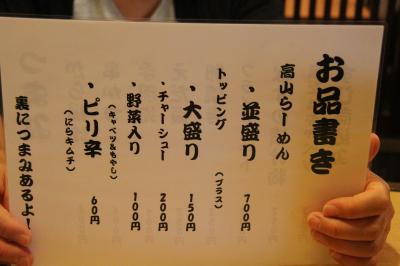 お品書き
高山らーめん
・並盛り 700円
トッピング (プラス)
・大盛り 150円
・チャーシュー 200円
・野菜入り 100円
(キャベツ&もやし)
・ピリ辛 60円
(にらキムチ)
裏につまみあるよ!